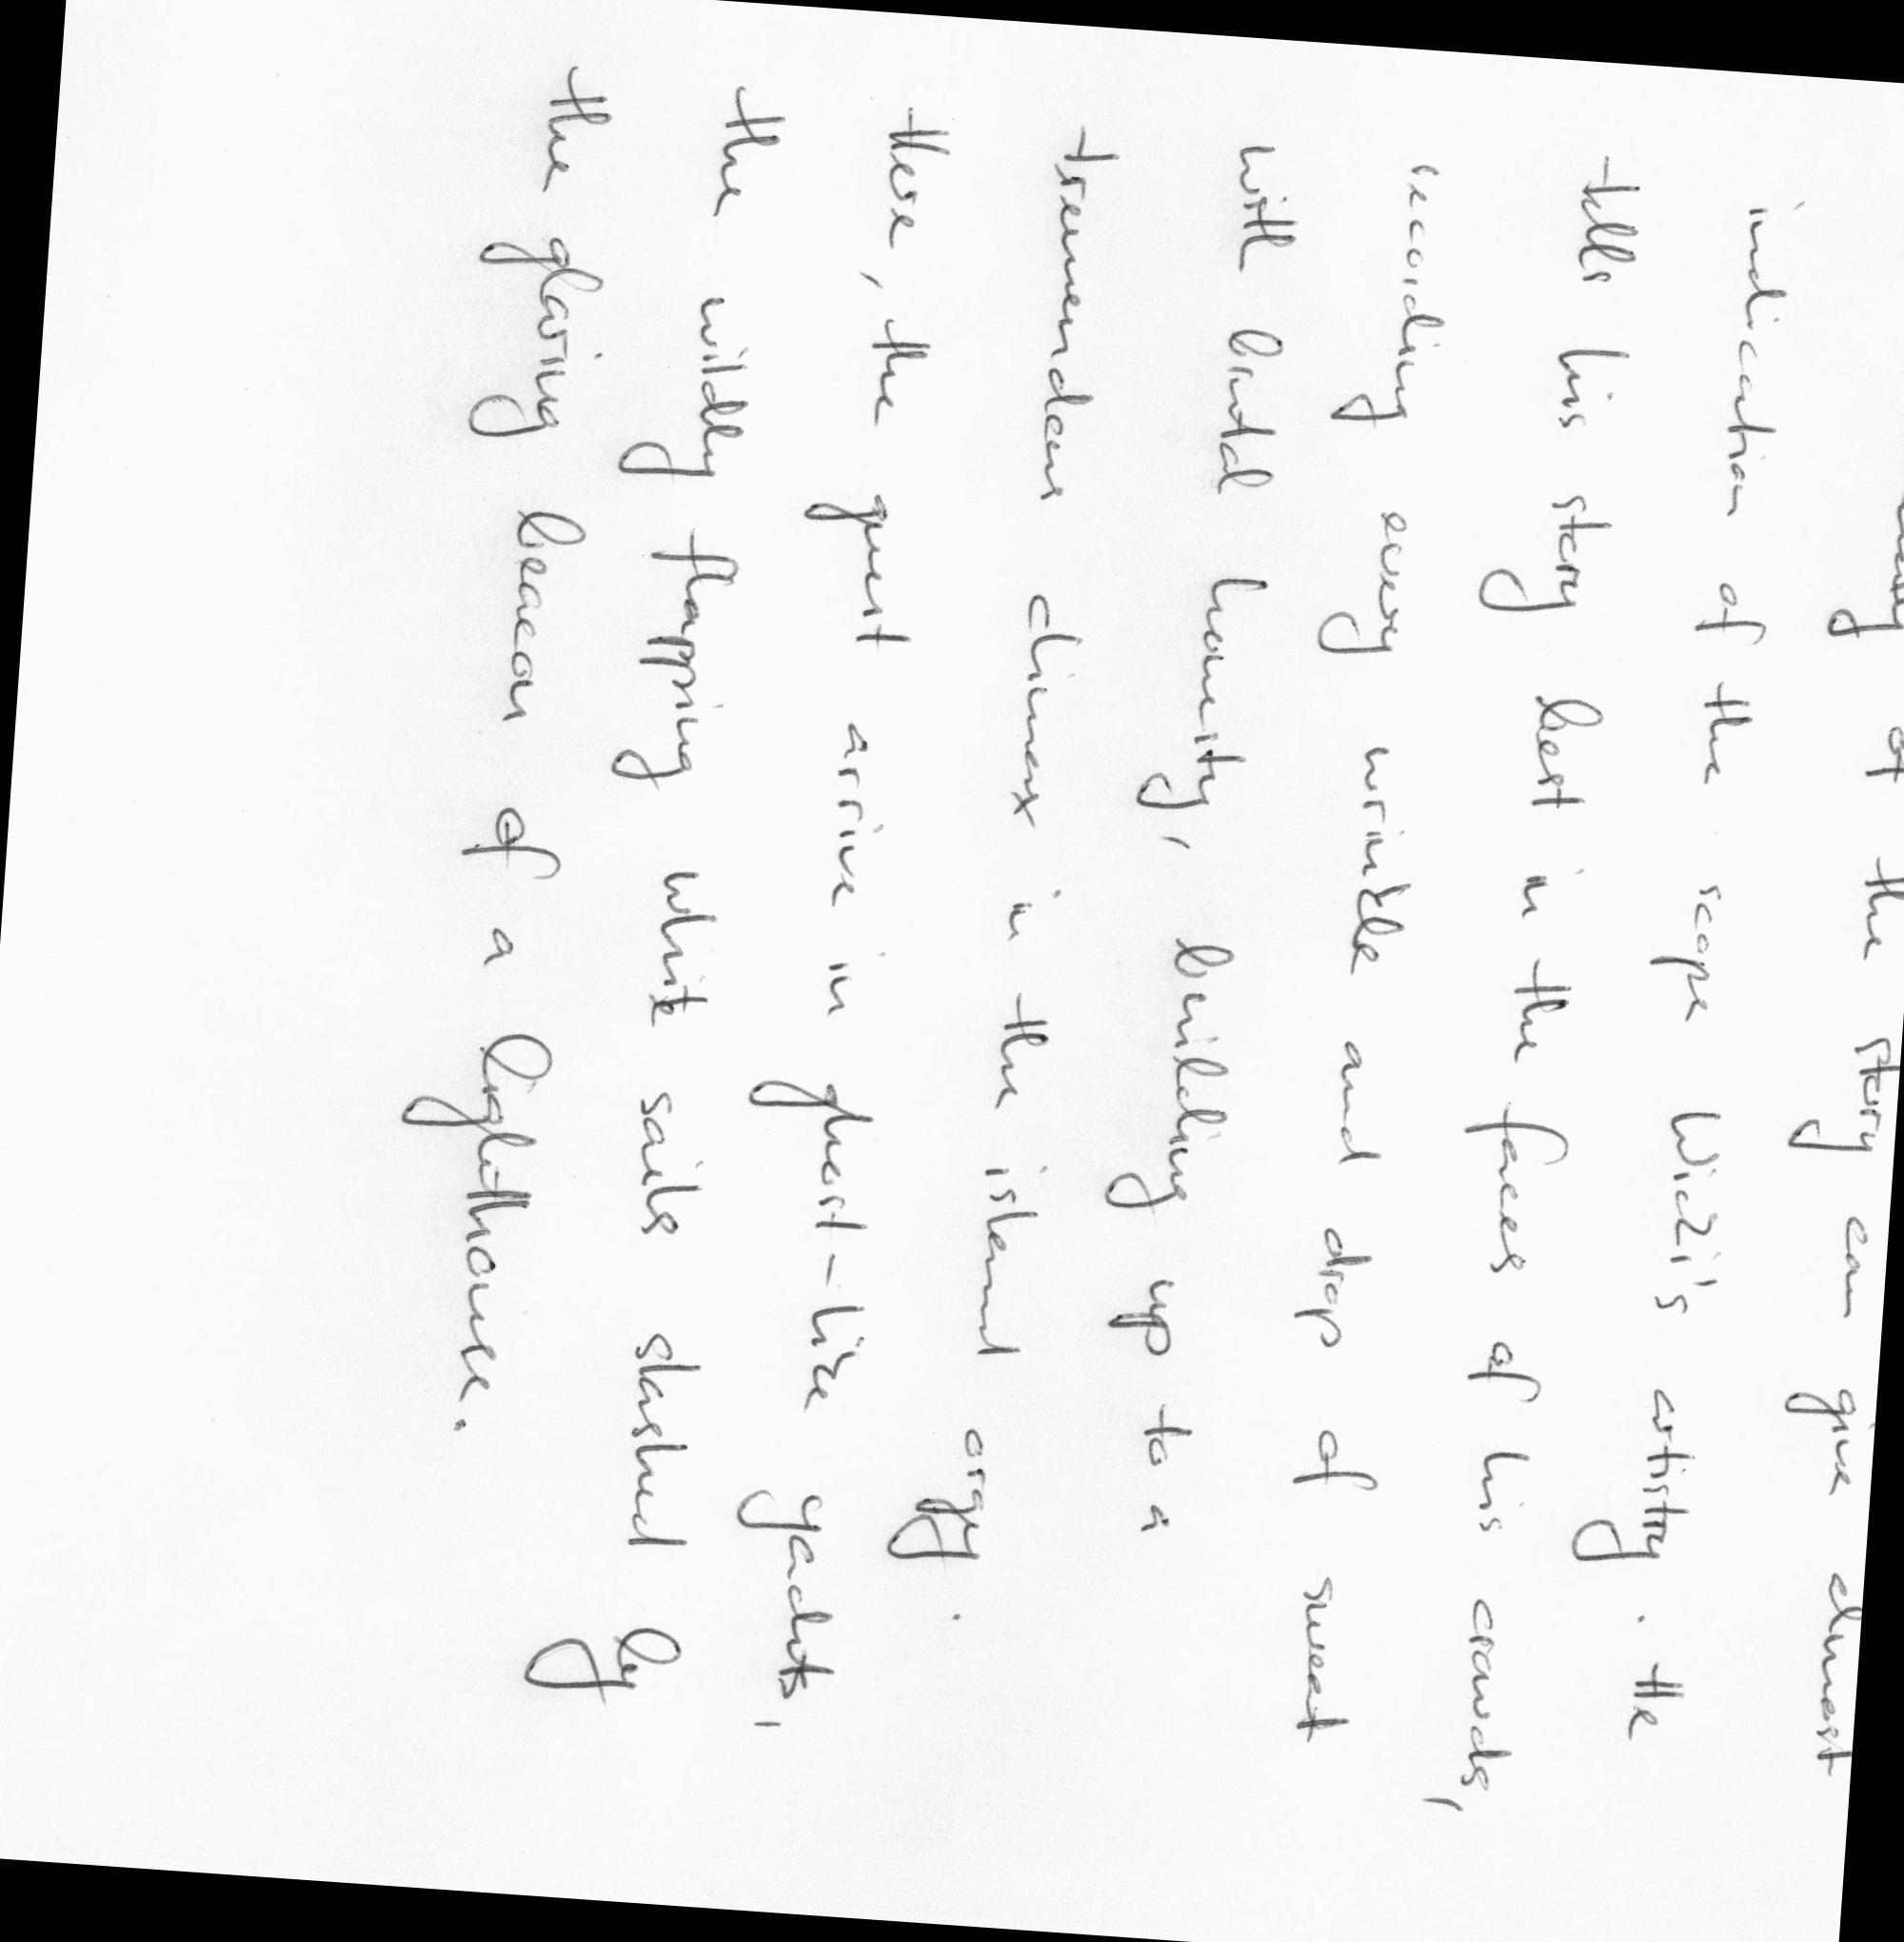 of the story can give almost
indication of the scope Wicki's artistry. He
tells his story best in the faces of his crowds,
recording every wrinkle and drop of sweat
with brutal honesty, building up to a
tremendous climax in the island orgy.
Here, the guest arrive in ghost-like yachts,
the wildly flapping white sails slashed by
the glaring beacon of a lighthouse.